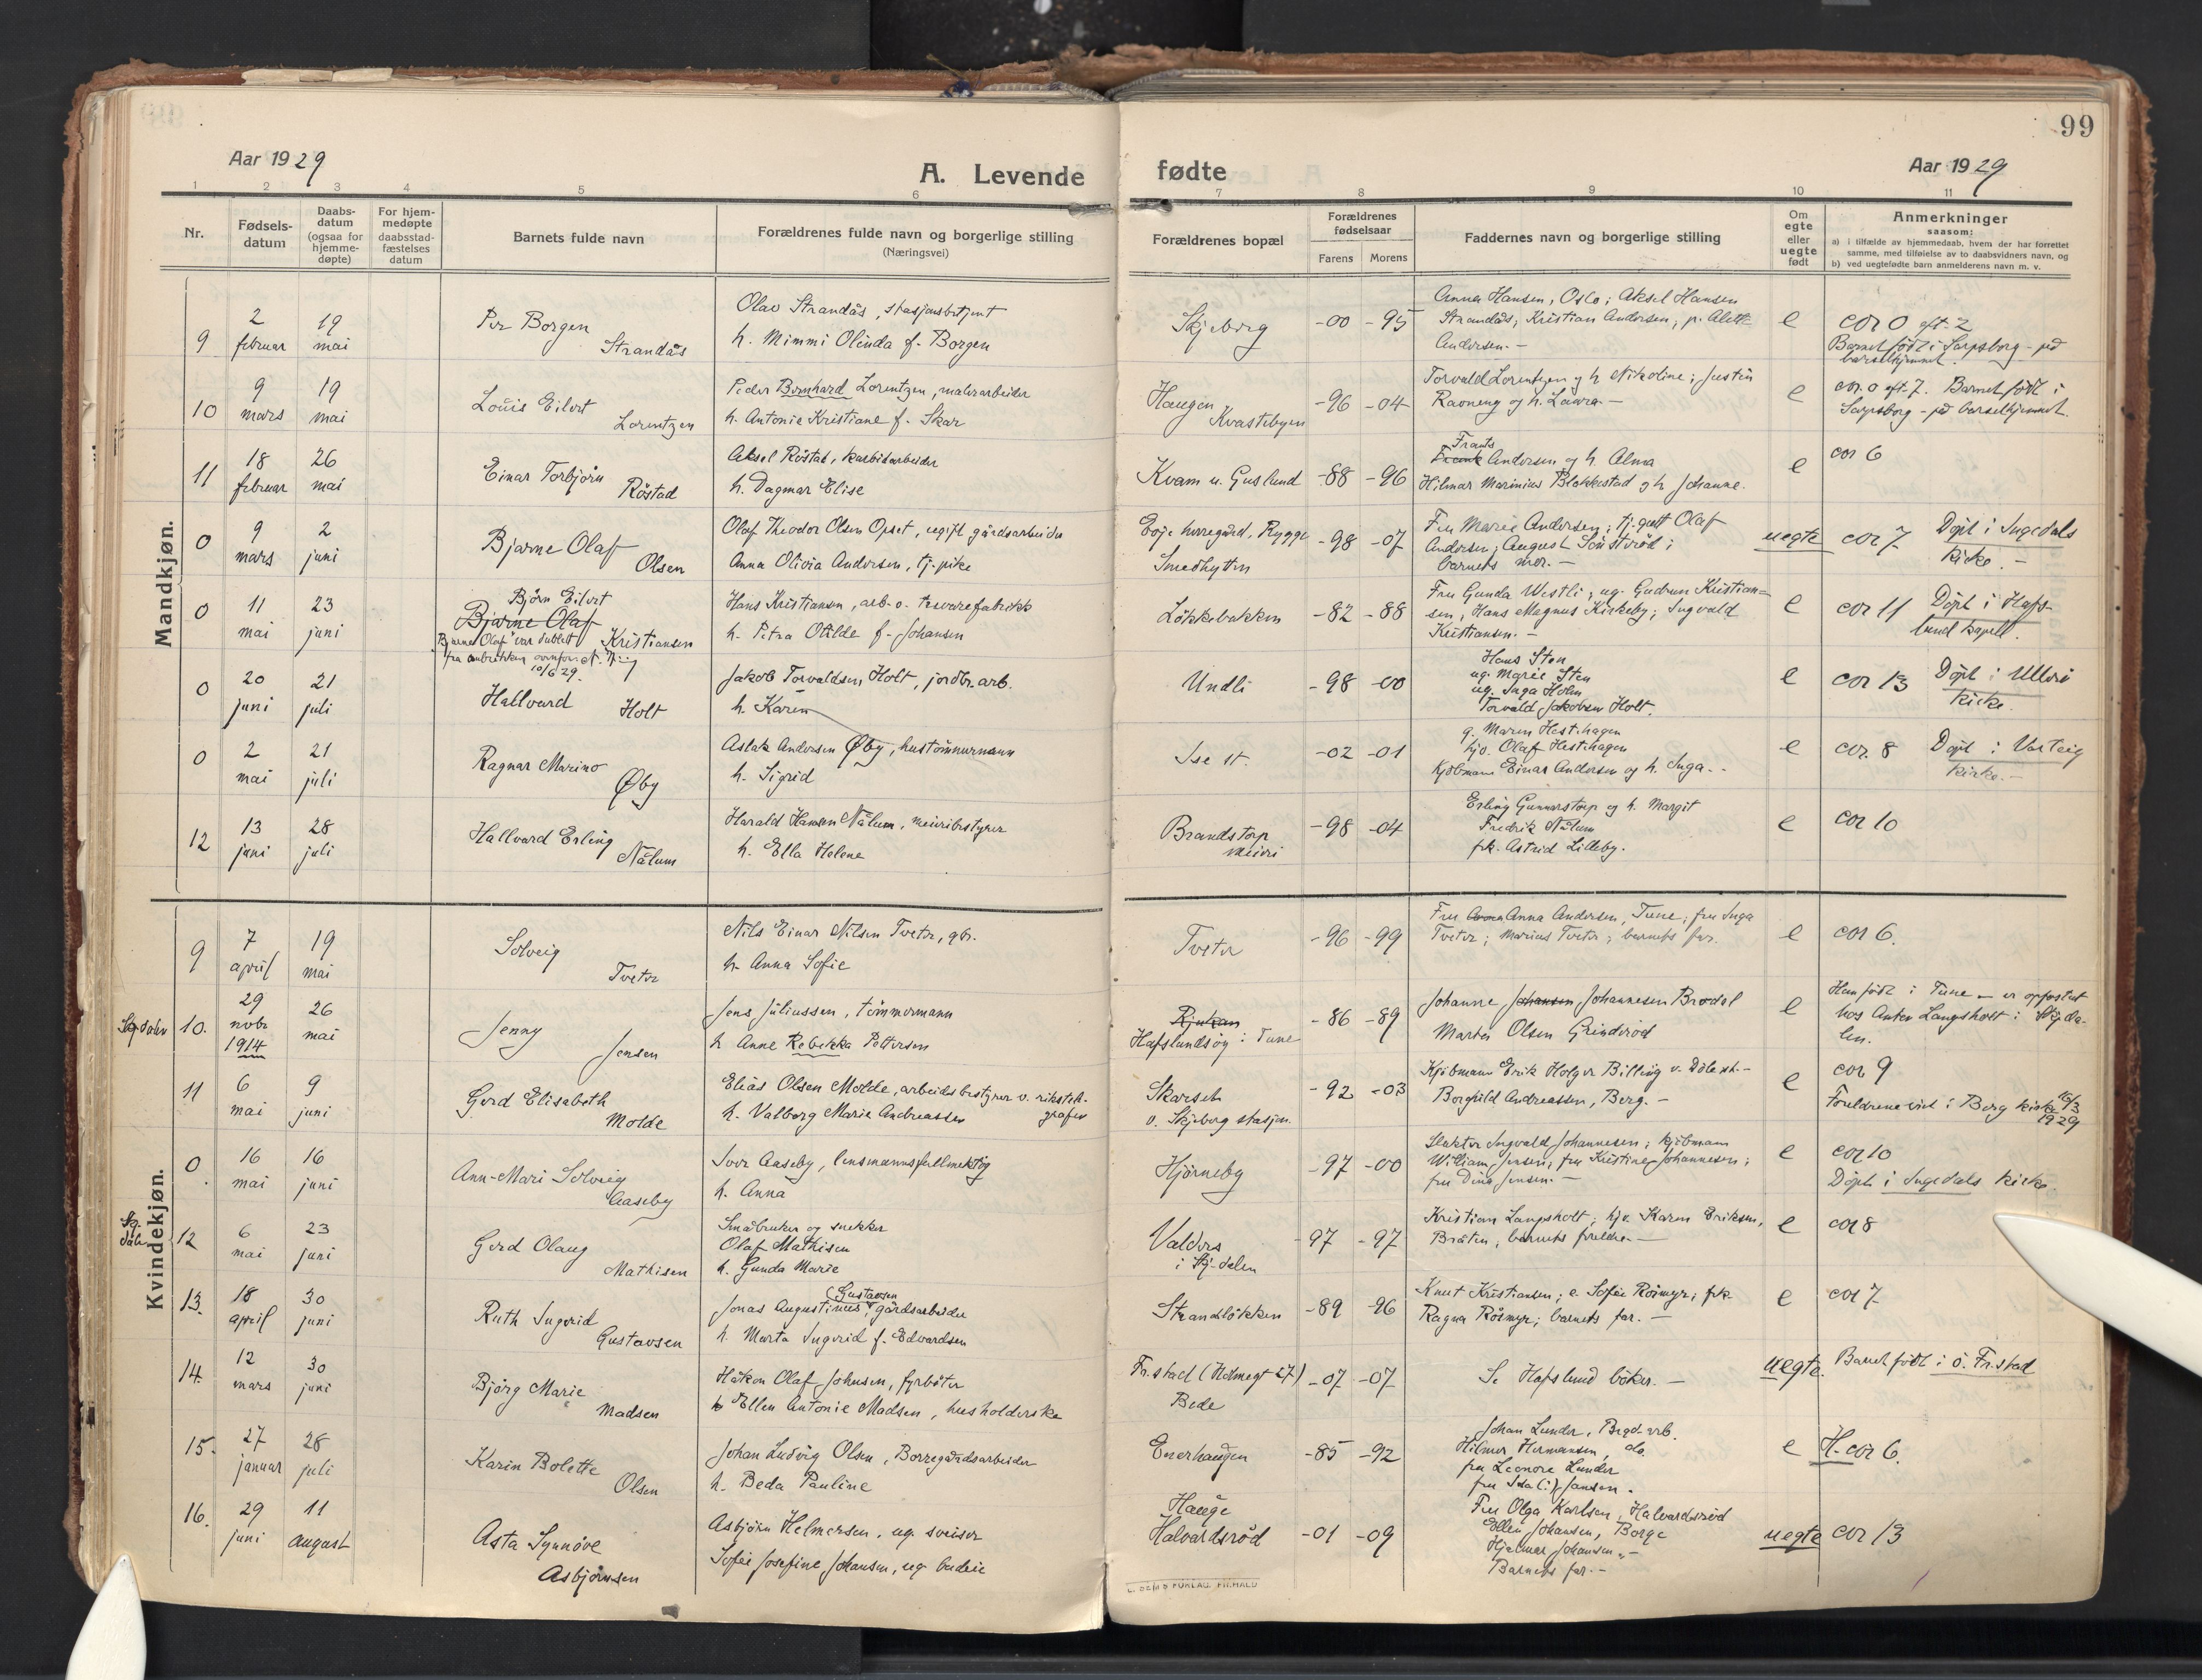 99
Aar 1929
A. Levende fødte
Aar 1929
1 2 3 4 5 6 7 8 9 10 11
Nr.
Fødsels-
datum
Daabs-
datum
(ogsaa for
hjemme-
døpte)
For hjem-
medøpte
daabsstad-
fæstelses
datum
Barnets fulde navn
Forældrenes fulde navn og borgerlige stilling
(Næringsvei)
Forældrenes bopæl
Forældrenes
fødselsaar
Farens Morens
Faddernes navn og borgerlige stilling
Om
egte
eller
uegte
født
Anmerkninger
saasom:
a) i tilfælde av hjemmedaab, hvem der har forrettet
samme, med tilføielse av to daabsvidners navn, og
b) ved uegtefødte barn anmelderens navn m. v.
Mandkjøn.
9
2
februar
19
mai
Per Borgen
Strandås
Olav Strandås, stasjonsbetjent
h. Mimmi Olinda f. Borgen
Skjeberg
-00 -95
Anna Hansen, Oslo; Aksel Hansen
Strandås; Kristian Andersen; p. Alette
Andersen.-
e
cor 0 eft. 2
Barnet født i Sarpsborg - på
barselhjemmet.
10
9
mars
19
mai
Louis Eilert
Lorentzen
Peder Bernhard Lorentzen, malerarbeider
h. Antonie Kristiane f. Skar
Haugen
Kvastebyen
-96 -04
Torvald Lorentzen og h. Nikoline; Justin
Ravneng og h. Laura.-
e
cor. 0 eft. 7. Barnet født i
Sarpsborg - på barselhjemmet.
11
18
februar
26
mai
Einar Torbjørn
Röstad
Aksel Röstad, karbidarbeider
h. Dagmar Elise
Kvam u. Guslund
-88 -96
Frants
Frank Andersen og h. Alma
Hilmar Marinius Blakkestad og h. Johanne.
e
cor 6
0
9
mars
2
juni
Bjarne Olaf
Olsen
Olaf Theodor Olsen Opset, ugift gårdsarbeider
Anna Olivia Andersen, tj. pike
Evje herregård, Rygge
Smedhytten
-98 -07
Fru Marie Andersen; tj. gutt Olaf
Andersen; August
barnets mor.-
uegte
cor 7
Döpt i Ingedals
kirke.-
0
11
mai
23
juni
Björn Eilert
Bjarne Olaf
Kristiansen
"Bjarne Olaf" var dublett
10/6 29.
Hans Kristiansen, arb. v. trevarefabrikk
h. Petra Otilde f. Johansen
Løkkebakken
-82 -88
Fru Gunda Westli; ug. Gudrun Kristian=
sen; Hans Magnus Kirkeby; Ingvald
Kristiansen.-
e
cor 11
Döpt i Hafs-
lund kapell.
0
20
juni
21
juli
Hallvard
Holt
Jakob Torvaldsen Holt, jordbr. arb.
h. Karen
Undli
-98 -00
Hans Sten
ug. Marie Sten
ug. Inga Holm
Torvald Jakobsen Holt.
e
cor 13
Döpt i Ullerøi
kirke.
0
2
mai
21
juli
Ragnar Marino
Øby
Aslak Andersen Øby, hustömmermann
h. Sigrid
Ise st.
-02 -01
g. Maren Hestehagen
hjv. Olaf Hestehagen
Kjöbmann Einar Andersen og h. Inga.-
e
cor. 8
Döpt i Varteig
kirke.-
12
13
juni
28
juli
Hallvard Erling
Nålum
Harald Hansen Nålum, meieribestyrer
h. Ella Helene
Brandstorp
meieri
-98 -04
Erling Gunnarstorp og h. Margit
Fredrik Nålum
frk. Astrid Lilleby.
e
cor 10
Kvindekjøn.
9
7
april
19
mai
Solveig
Tveter
Nils Einar Nilsen Tveter, gbr.
h. Anna Sofie
Tveter
-96 -99
Fru Anna Andersen, Tune; fru Inga
Tveter; Marius Tveter; barnets far.
e
cor 6.
Skjdalen
10.
29
novbr
1914
26
mai
Jenny
Jensen
Jens Juliussen, tömmermann
h Anne Rebekka Pettersen
Rjukan
Hafslundsöy i Tune
-86 -89
Johanne Johansen Johannesen Brødal
Marten Olsen Grinderöd
e
Hun födt i Tune - er opfostret
hos Anton Langsholt i Skjda-
len.
11
6
mai
9
juni
Gerd Elisabeth
Molde
Elias Olsen Molde, arbeidsbestyrer v. rikstele-
grafen
h. Valborg Marie Andreassen
Skarseth
v. Skjeberg stasjon.
-92 -03
Kjöbmann Erik Holger Billing v. Döle st.-
Borghild Andreassen, Berg.-
e
cor 9
Foreldrene viet i Berg kirke 16/3
1929
0
16
mai
16
juni
Ann-Mari Solveig
Aaseby
Iver Aaseby, lensmannsfullmektig
h. Anna
Hjörneby
-97 -00
Slakter Ingvald Johannesen; kjöbmann
William Jensen; fru Kristine Johannesen;
fru Dina Jensen.-
e
cor 10
Döpt i Ingedals kirke.
Skj.
dalen
12
6
mai
23
juni
Gerd Olaug
Mathisen
Småbruker og snekker
Olaf Mathisen
h. Gunda Marie
Valders
i Skj-dalen
-97 -97
Kristian Langsholt; hjv. Karen Eriksen,
Bråten; barnets foreldre.-
e
cor 8
13.
18
april
30
juni
Ruth Ingerid
Gustavsen
(Gustavsen
Jonas Augustinus, gårdsarbeider
h. Marta Ingerid f. Edvardsen
Strandlökken
-89 -96
Knut Kristiansen; e. Sofie Rösmyr; frk.
Ragna Rösmyr; barnets far.-
e
cor 7
14.
12
mars
30
juni
Björg Marie
Madsen
Håkon Olaf Johnsen, fyrböter
Ellen Antonie Madsen, husholderske
Fr.stad
Bede
-07 -07
Se Hafslund böker.-
uegte.
Barnet födt i ö. Fr.stad
15.
27
januar
28
juli
Karin Bolette
Olsen
Johan Ludvig Olsen, Borregårdsarbeider
h. Beda Pauline
Enerhaugen
-85 -92
Johan Lunder, Brgd. arb.
Hilmer Hermansen, do.
fru Leonore Lunder
fru Jansen.
e
H. cor 6.
16.
29
juni
11
august
Asta Synnöve
Asbjörnsen
Asbjörn Helmersen, ug. sveiser
Sofie Josefine Johansen, ug. budeie
Hauge
Halvardsröd
-01 -09
Fru Olga Karlsen, Halvardsröd
Ellen Johansen, Borge
Hjelmar Johansen „-
Barnets far.-
uegte
cor 13
FORLAG. FR.HALD